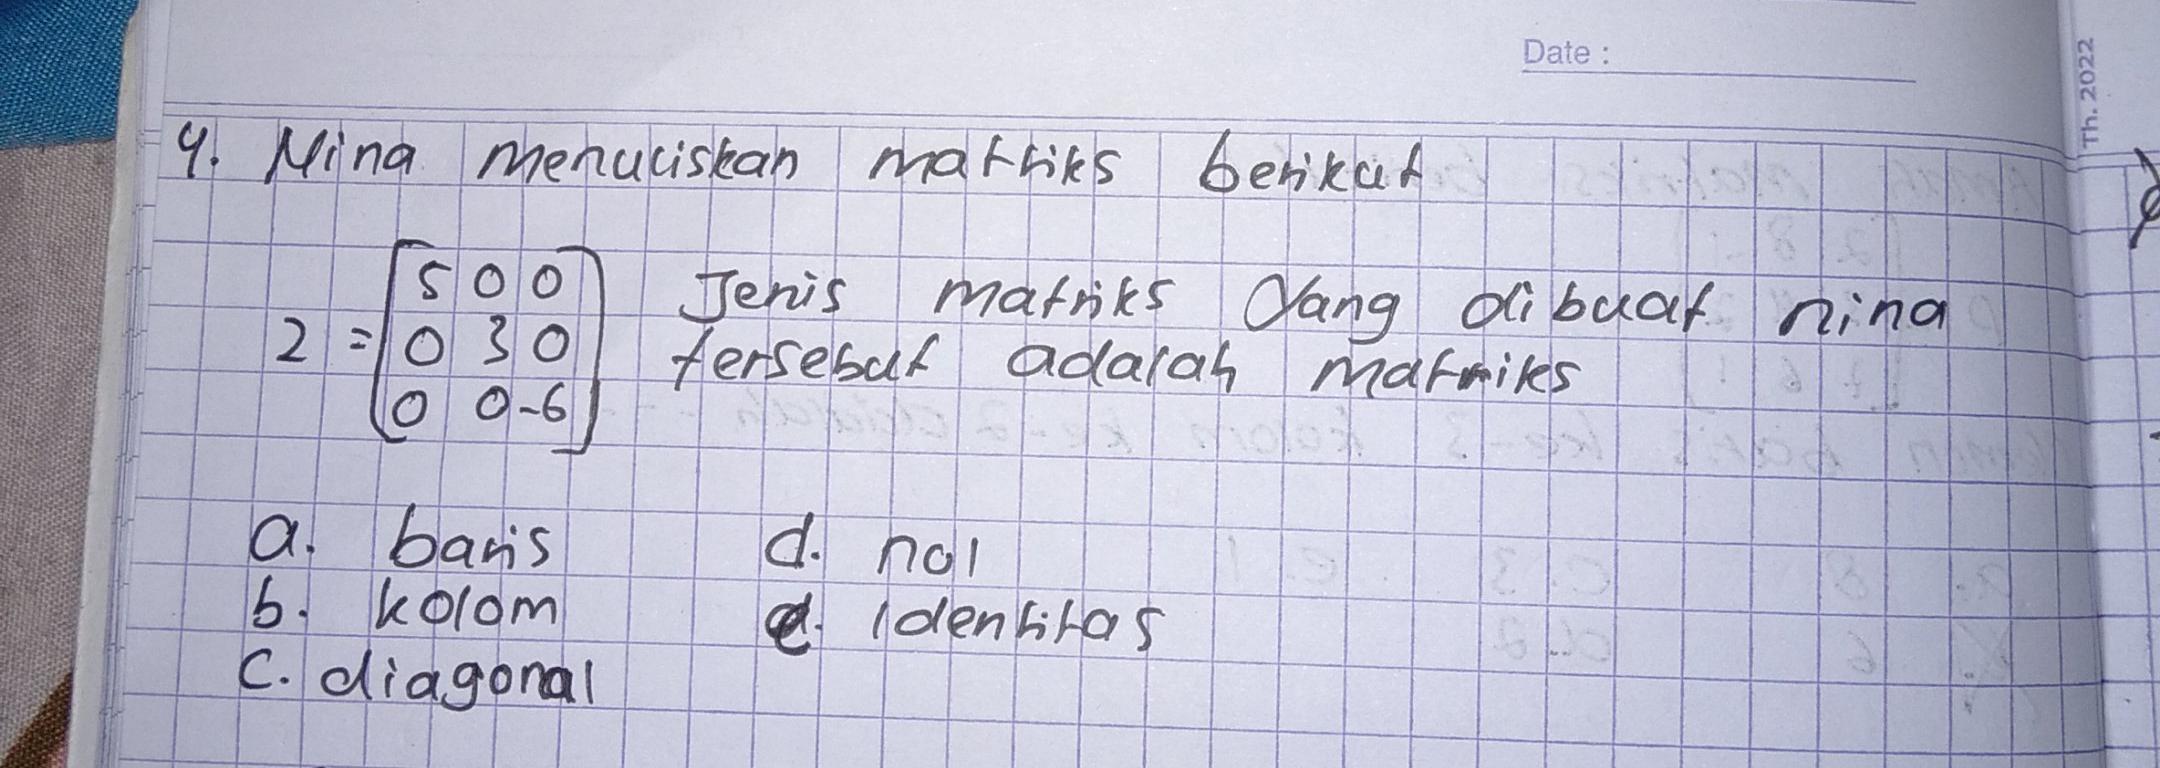 Date :
Th. 2022
4. Nina menuliskan matriks berikut
2 = [5 0 0
0 3 0
0 0 -6]
Jenis matriks yang dibuat nina
tersebut adalah matriks
a. baris
b. kolom
c. diagonal
d. nol
e. identitas